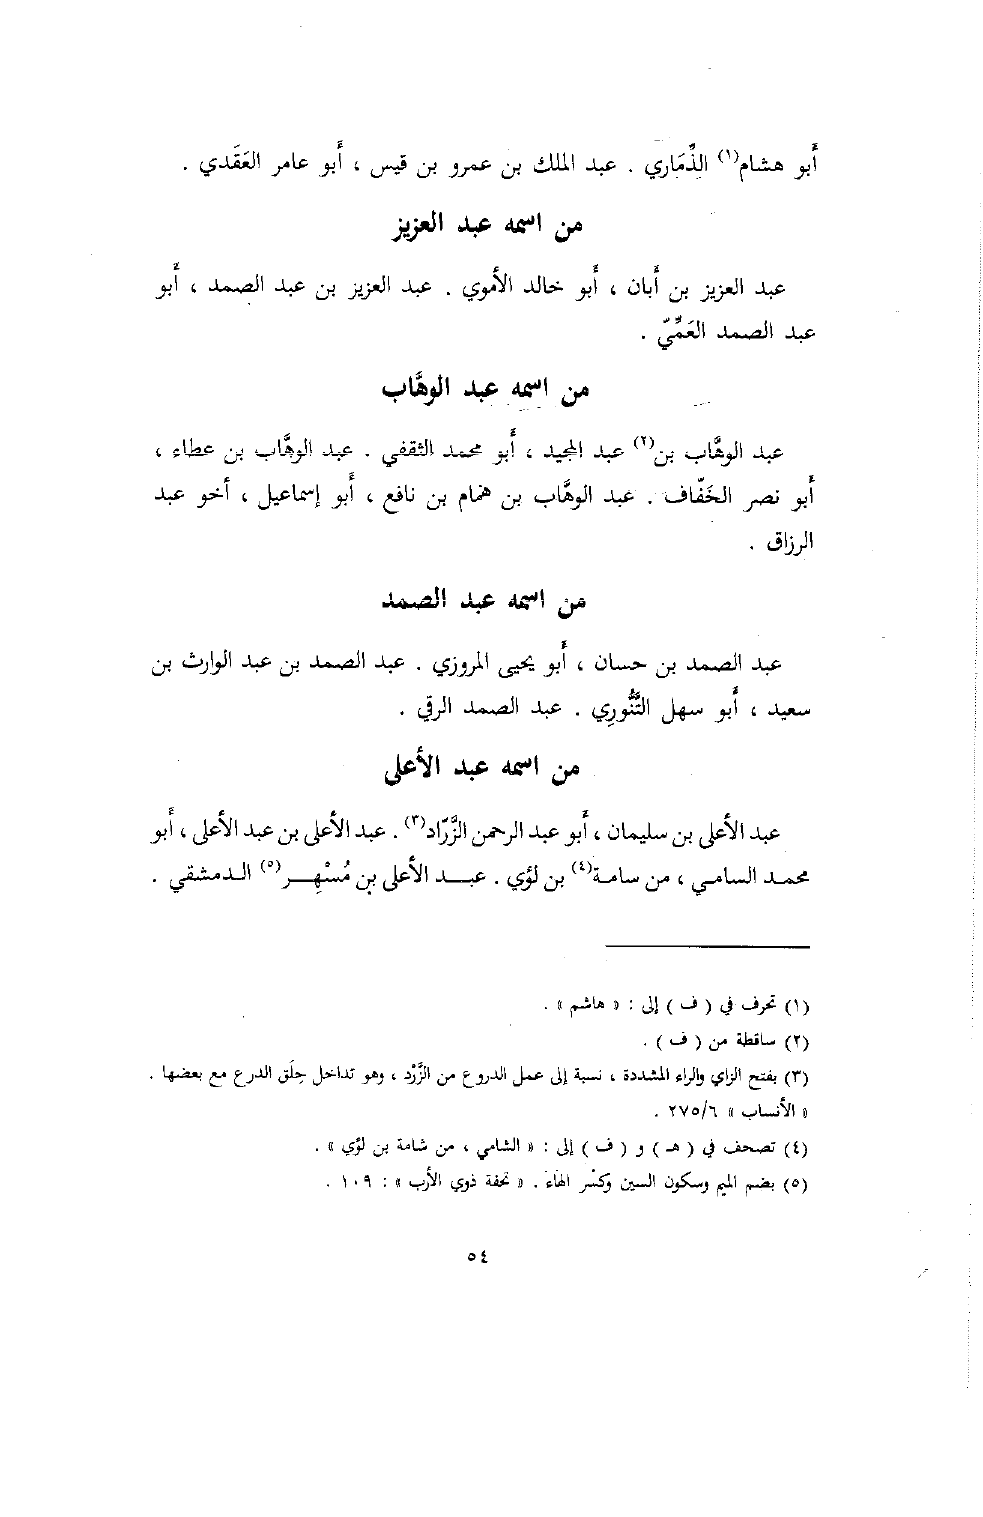 أَبو هشام(١) الذِّمَاري . عبد الملك بن عمرو بن قيس ، أَبو عامر العَقَدي .
من اسمه عبد العزيز
عبد العزيز بن أَبان ، أَبو خالد الأموي . عبد العزيز بن عبد الصمد ، أَبو
عبد الصمد العَمِّيّ .
من اسمه عبد الوهَّاب
عبد الوهَّاب بن(٢) عبد المجيد ، أَبو محمد الثقفي . عبد الوهَّاب بن عطاء ،
أَبو نصر الخَفّاف . عبد الوهَّاب بن همام بن نافع ، أَبو إسماعيل ، أخو عبد
الرزاق .
من اسمه عبد الصمد
عبد الصمد بن حسان ، أَبو يحيى المروزي . عبد الصمد بن عبد الوارث بن
سعيد ، أَبو سهل التَّنُّورِي . عبد الصمد الرقي .
من اسمه عبد الأعلى
عبد الأعلى بن سليمان ، أَبو عبد الرحمن الزَّرّاد(٣) . عبد الأعلى بن عبد الأعلى ، أَبو
محمد السامي ، من سامة(٤) بن لؤي . عبد الأعلى بن مُسْهِر(٥) الدمشقي .
(١) تحرف في ( ف ) إلى : « هاشم » .
(٢) ساقطة من ( ف ) .
(٣) بفتح الزاي والراء المشددة ، نسبة إلى عمل الدروع من الزَّرْد ، وهو تداخل حِلَق الدرع مع بعضها .
« الأنساب » ٢٧٥/٦ .
(٤) تصحف في ( هـ ) و ( ف ) إلى : « الشامي ، من شامة بن لؤي » .
(٥) بضم الميم وسكون السين وكسْر الهاء . « تحفة ذوي الأرب » : ١٠٩ .
٥٤